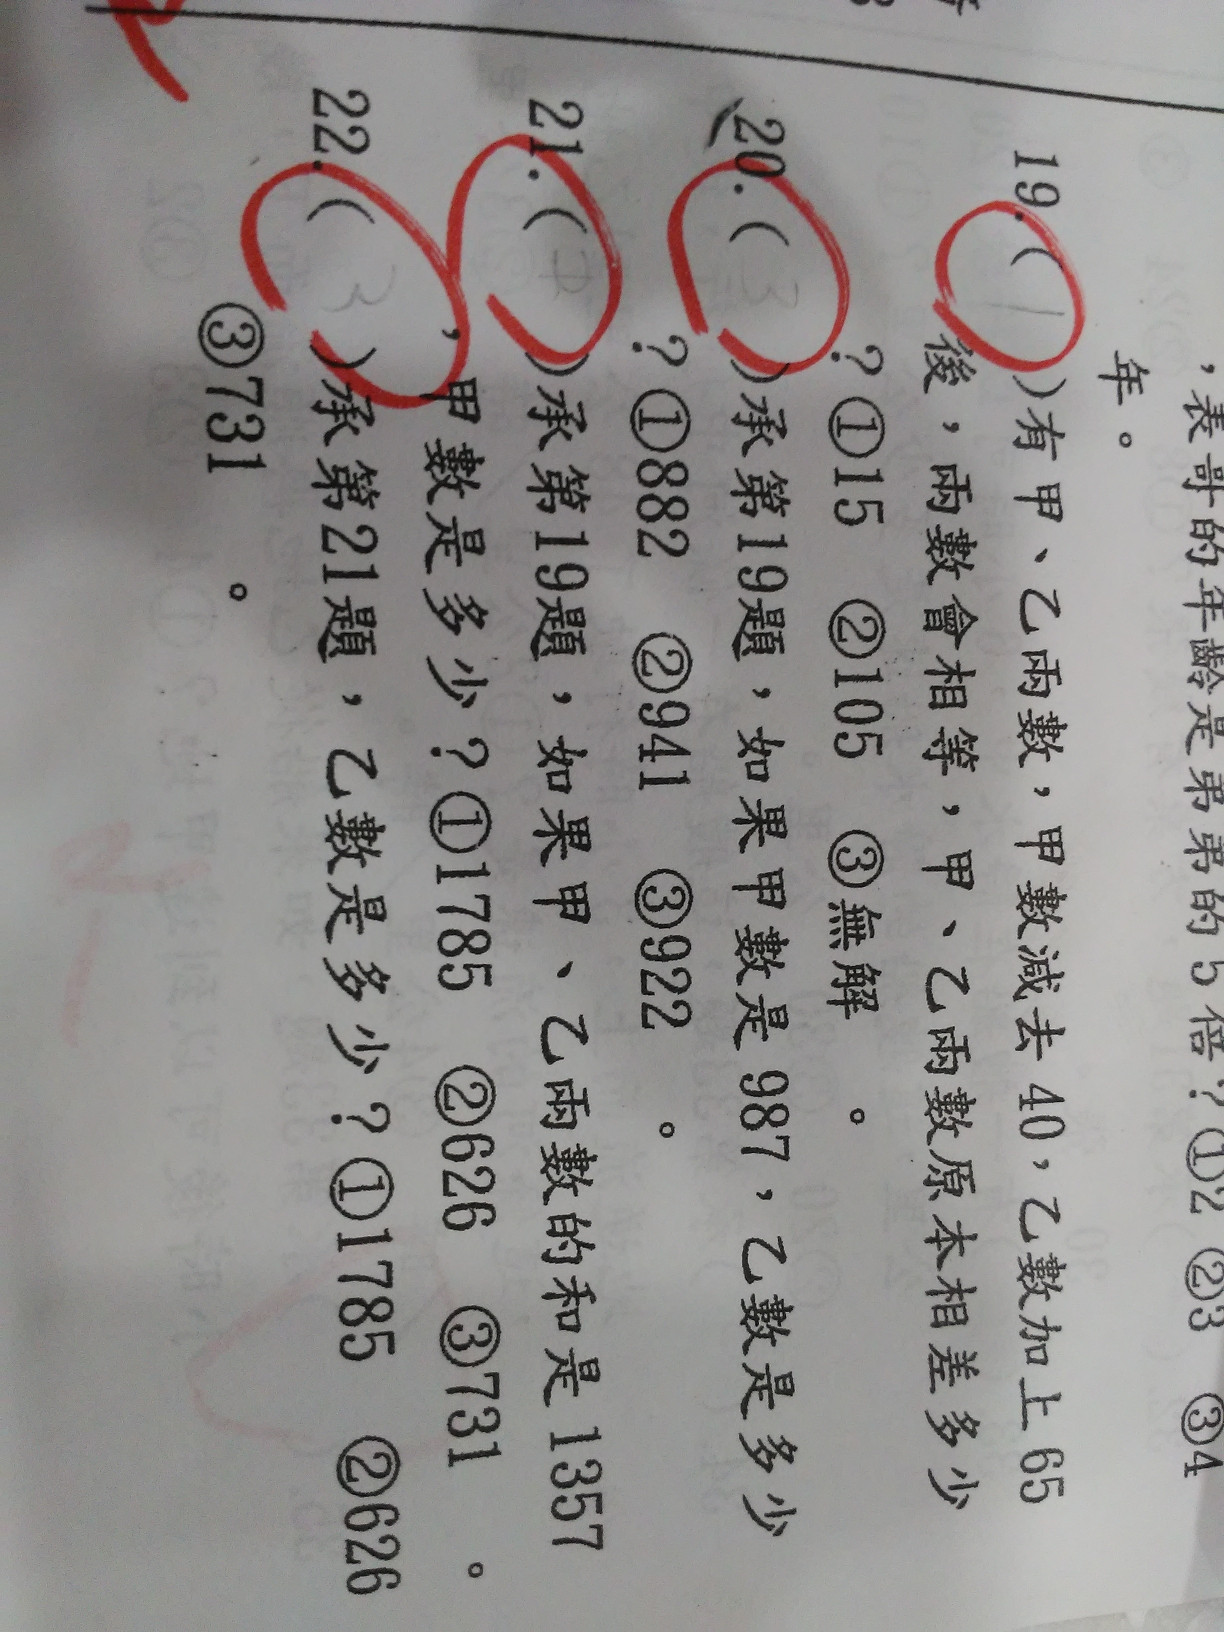 ，表哥的年齡是弟弟的5倍？①2 ②3 ③4
年。
19.( 1 )有甲、乙兩數，甲數減去 40，乙數加上 65
後，兩數會相等，甲、乙兩數原本相差多少
？①15 ②105 ③無解 。
20.( 3 )承第19題，如果甲數是 987，乙數是多少
？①882 ②941 ③922 。
21.( )承第19題，如果甲、乙兩數的和是 1357
，甲數是多少？①1785 ②626 ③731 。
22.( 3 )承第21題，乙數是多少？①1785 ②626
③731 。